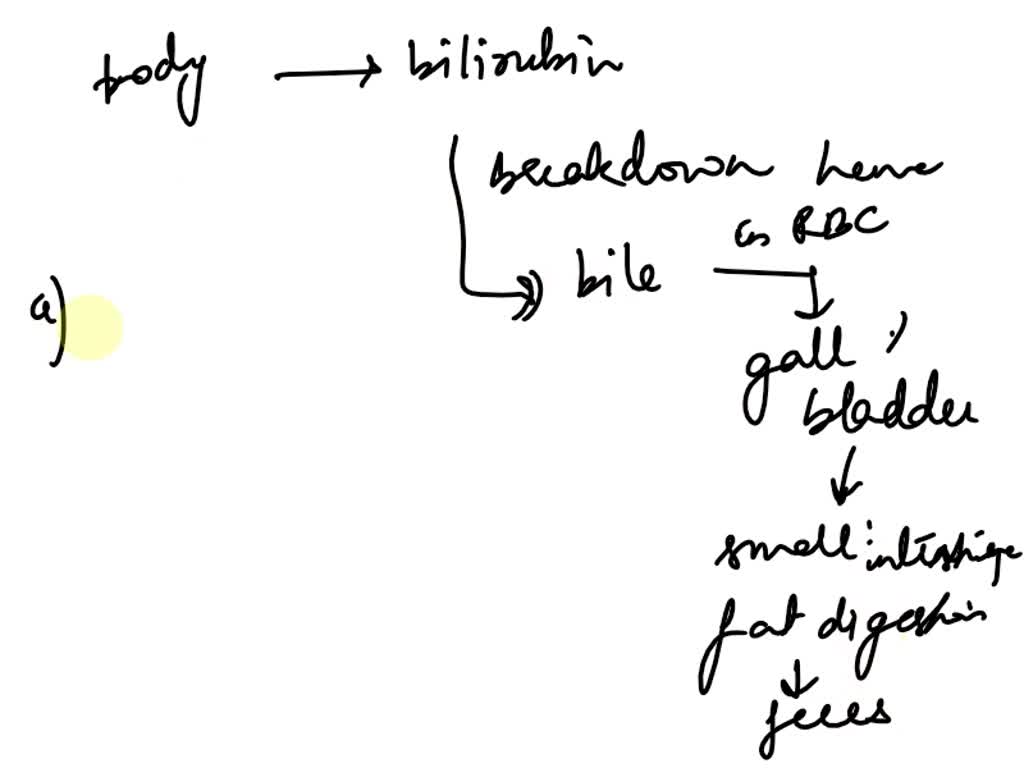 body → bilirubin
breakdown heme
in RBC
bile
a)
gall
bladder
small intestine
fat digestion
feces